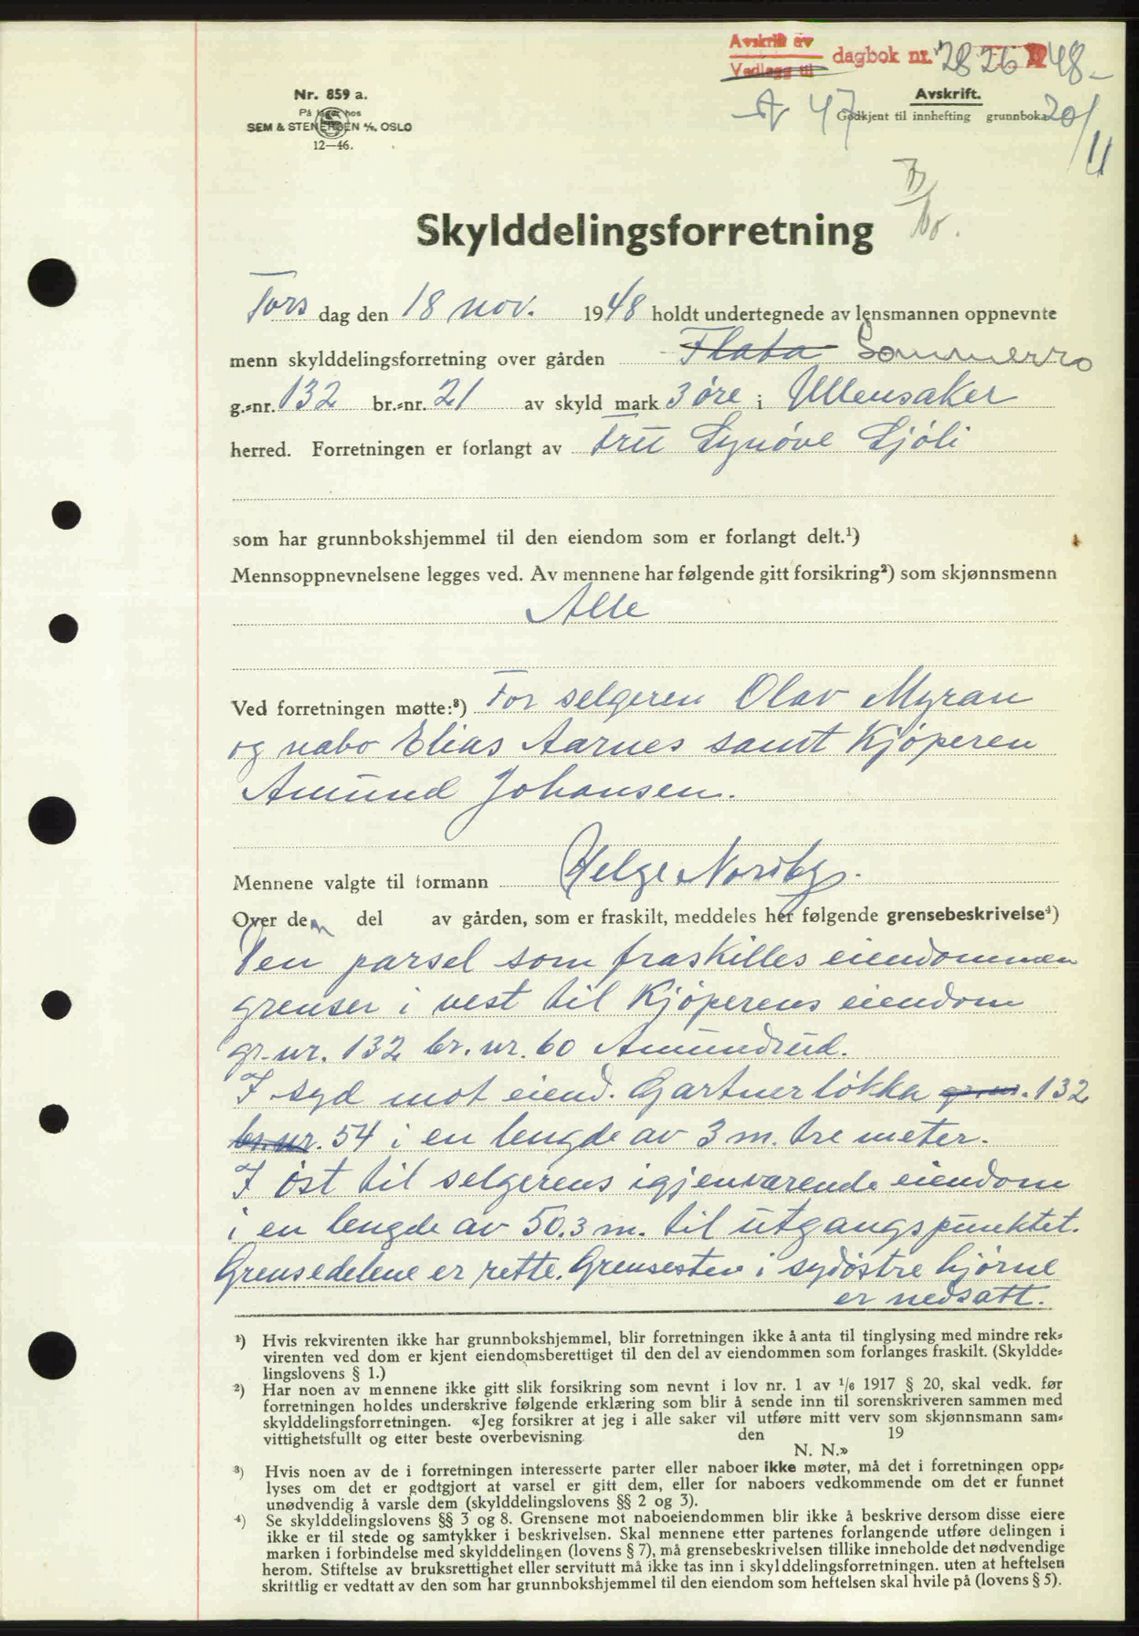 Avskrift av
Vedlegg til dagbok nr. 2826 48
Nr. 859 a.
På lager hos
SEM & STENERSEN A/S, OSLO
12—46.
Avskrift.
47 Godkjent til innhefting grunnboka 20/11
Skylddelingsforretning
Tors dag den 18 nov. 1948 holdt undertegnede av lensmannen oppnevnte
menn skylddelingsforretning over gården Flata Sommerro
g.=nr. 132 br.=nr. 21 av skyld mark 3 øre i Ullensaker
herred. Forretningen er forlangt av Fru Synøve Sjøli
som har grunnbokshjemmel til den eiendom som er forlangt delt.¹)
Mennsoppnevnelsene legges ved. Av mennene har følgende gitt forsikring²) som skjønnsmenn
Alle
Ved forretningen møtte:³) For selgeren Olav Myran
og nabo Elias Aarnes samt Kjøperen
Amund Johansen.
Mennene valgte til formann Helge Nordby.
Over den del av gården, som er fraskilt, meddeles her følgende grensebeskrivelse⁴)
Den parsel som fraskilles eiendommen
grenser i vest til Kjøperens eiendom
gr.nr. 132 br.nr. 60 Amundrud.
I syd mot eiend. Gartnerløkka gr.nr. 132
br.nr. 54 i en lengde av 3 m. tre meter.
I øst til selgerens igjenværende eiendom
i en lengde av 50.3 m. til utgangspunktet.
Grensedelene er rette. Grensesten i sydøstre hjørne
er nedsatt.
¹) Hvis rekvirenten ikke har grunnbokshjemmel, blir forretningen ikke å anta til tinglysing med mindre rek=
virenten ved dom er kjent eiendomsberettiget til den del av eiendommen som forlanges fraskilt. (Skyldde=
lingslovens § 1.)
²) Har noen av mennene ikke gitt slik forsikring som nevnt i lov nr. 1 av 1/6 1917 § 20, skal vedk. før
forretningen holdes underskrive følgende erklæring som blir å sende inn til sorenskriveren sammen med
skylddelingsforretningen. «Jeg forsikrer at jeg i alle saker vil utføre mitt verv som skjønnsmann sam=
vittighetsfullt og etter beste overbevisning den 19
N. N.»
³) Hvis noen av de i forretningen interesserte parter eller naboer ikke møter, må det i forretningen opp=
lyses om det er godtgjort at varsel er gitt dem, eller for naboers vedkommende om det er funnet
unødvendig å varsle dem (skylddelingslovens §§ 2 og 3).
⁴) Se skylddelingslovens §§ 3 og 8. Grensene mot naboeiendommen blir ikke å beskrive dersom disse eiere
ikke er til stede og samtykker i beskrivelsen. Skal mennene etter partenes forlangende utføre delingen i
marken i forbindelse med skylddelingen (lovens § 7), må grensebeskrivelsen tillike inneholde det nødvendige
herom. Stiftelse av bruksrettighet eller servitutt må ikke tas inn i skylddelingsforretningen. uten at heftelsen
skriftlig er vedtatt av den som har grunnbokshjemmel til den eiendom som heftelsen skal hvile på (lovens § 5).